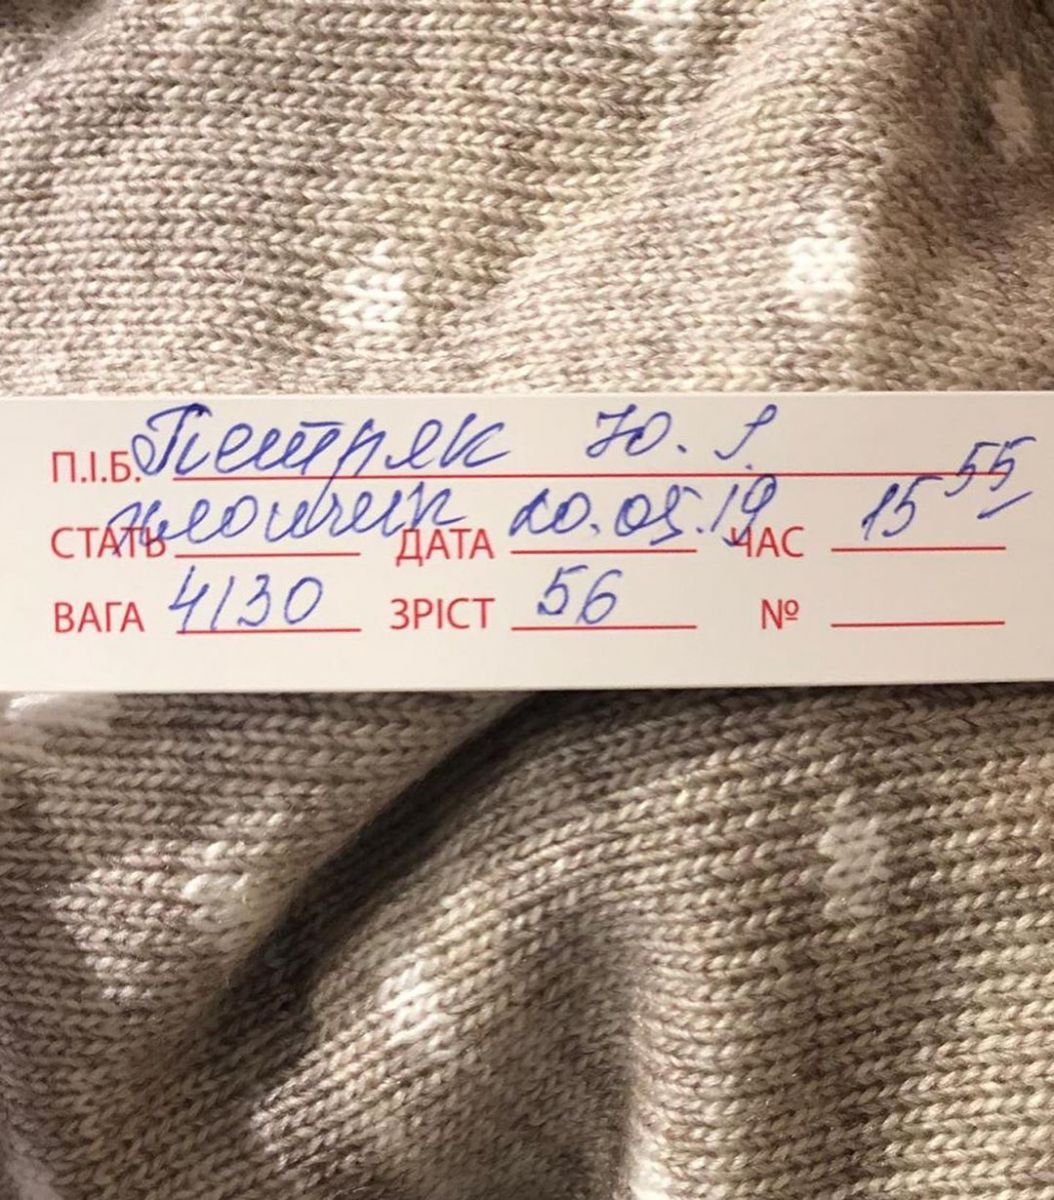 П.І.Б. Петряк Ю. Я.
СТАТЬ хлопчик ДАТА 20.05.19 ЧАС 15 55
ВАГА 4130 ЗРІСТ 56 №